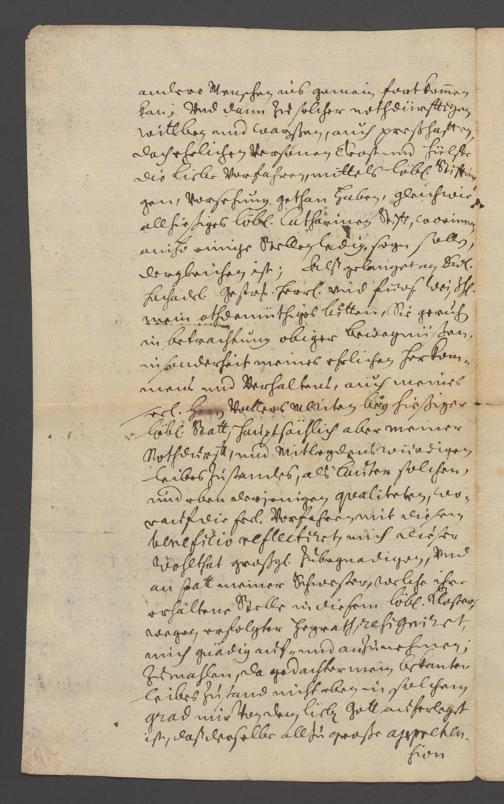 andere Menschen ins gemein fortkommen
kan; Und dann zu solcher nothdürfftigen
Wittben und Waysen, auch presthafften,
doch ehrlichen Persohnen Trost und Hülffe
die liebe Vorfahren, mittels löbl. Stifftun-
gen, Versehung gethan haben, gleichwie
allhiesiges löbl. Catharinen Stifft, worinnen
anitzo einige Stellen ledig seyn sollen,
dergleichen ist; Alß gelanget an
mein othdemüthiges bitten, Sie geruhen
in betrachtung obiger
in sonderheit meines ehrlichen Herkom-
mens und Verhaltens, auch meines
seel. Herrn Vatters meriten bey hießiger
löbl. Statt, hauptsächlich aber meiner
Notdurfft, und mitleydenswürdigen
Leibes Zustandes, als lauter solchen,
und eben denjenigen qualiteten, wo-
rauf die seel. Vorfahren mit diesem
beneficio reflectiret, mich dieser
Wohlthat großgl. zubegnadigen, und
an statt meiner Schwester, welche ihre
erhaltene Stelle in diesem löbl. Kloster,
wegen erfolgter Heyrath, resigniret,
mich gnädig auf- und anzunehmen;
Zumahlen, da gedachter mein bekanter
Leibes Zustand nicht eben in solchem
grad mir von dem lieben Gott auferleget
ist, daß derselbe allzu große apprehen-
sion